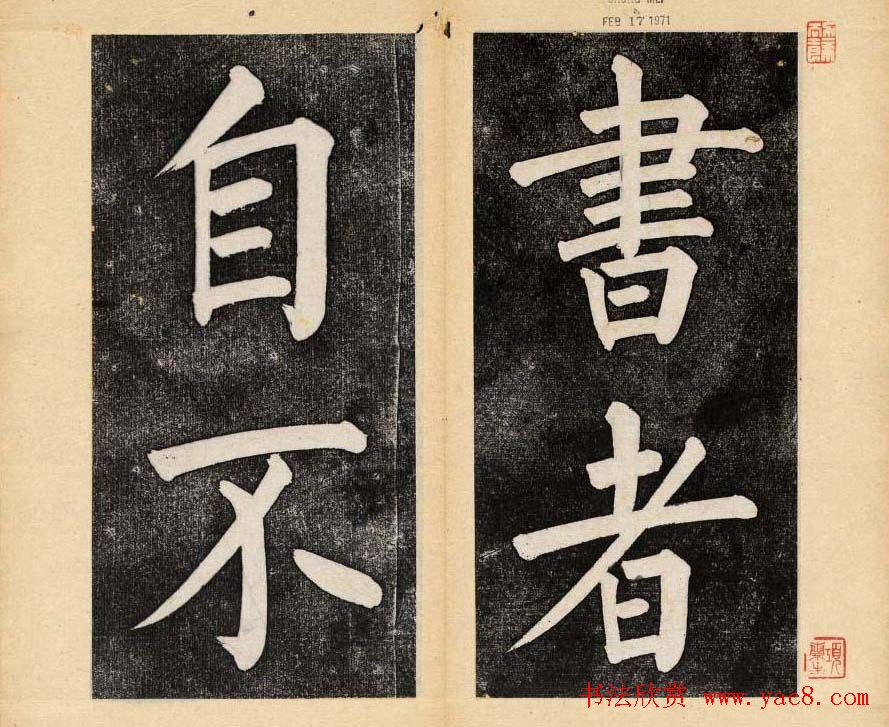 FEB 17 1971
書者
自不
书法欣赏 www.yac8.com